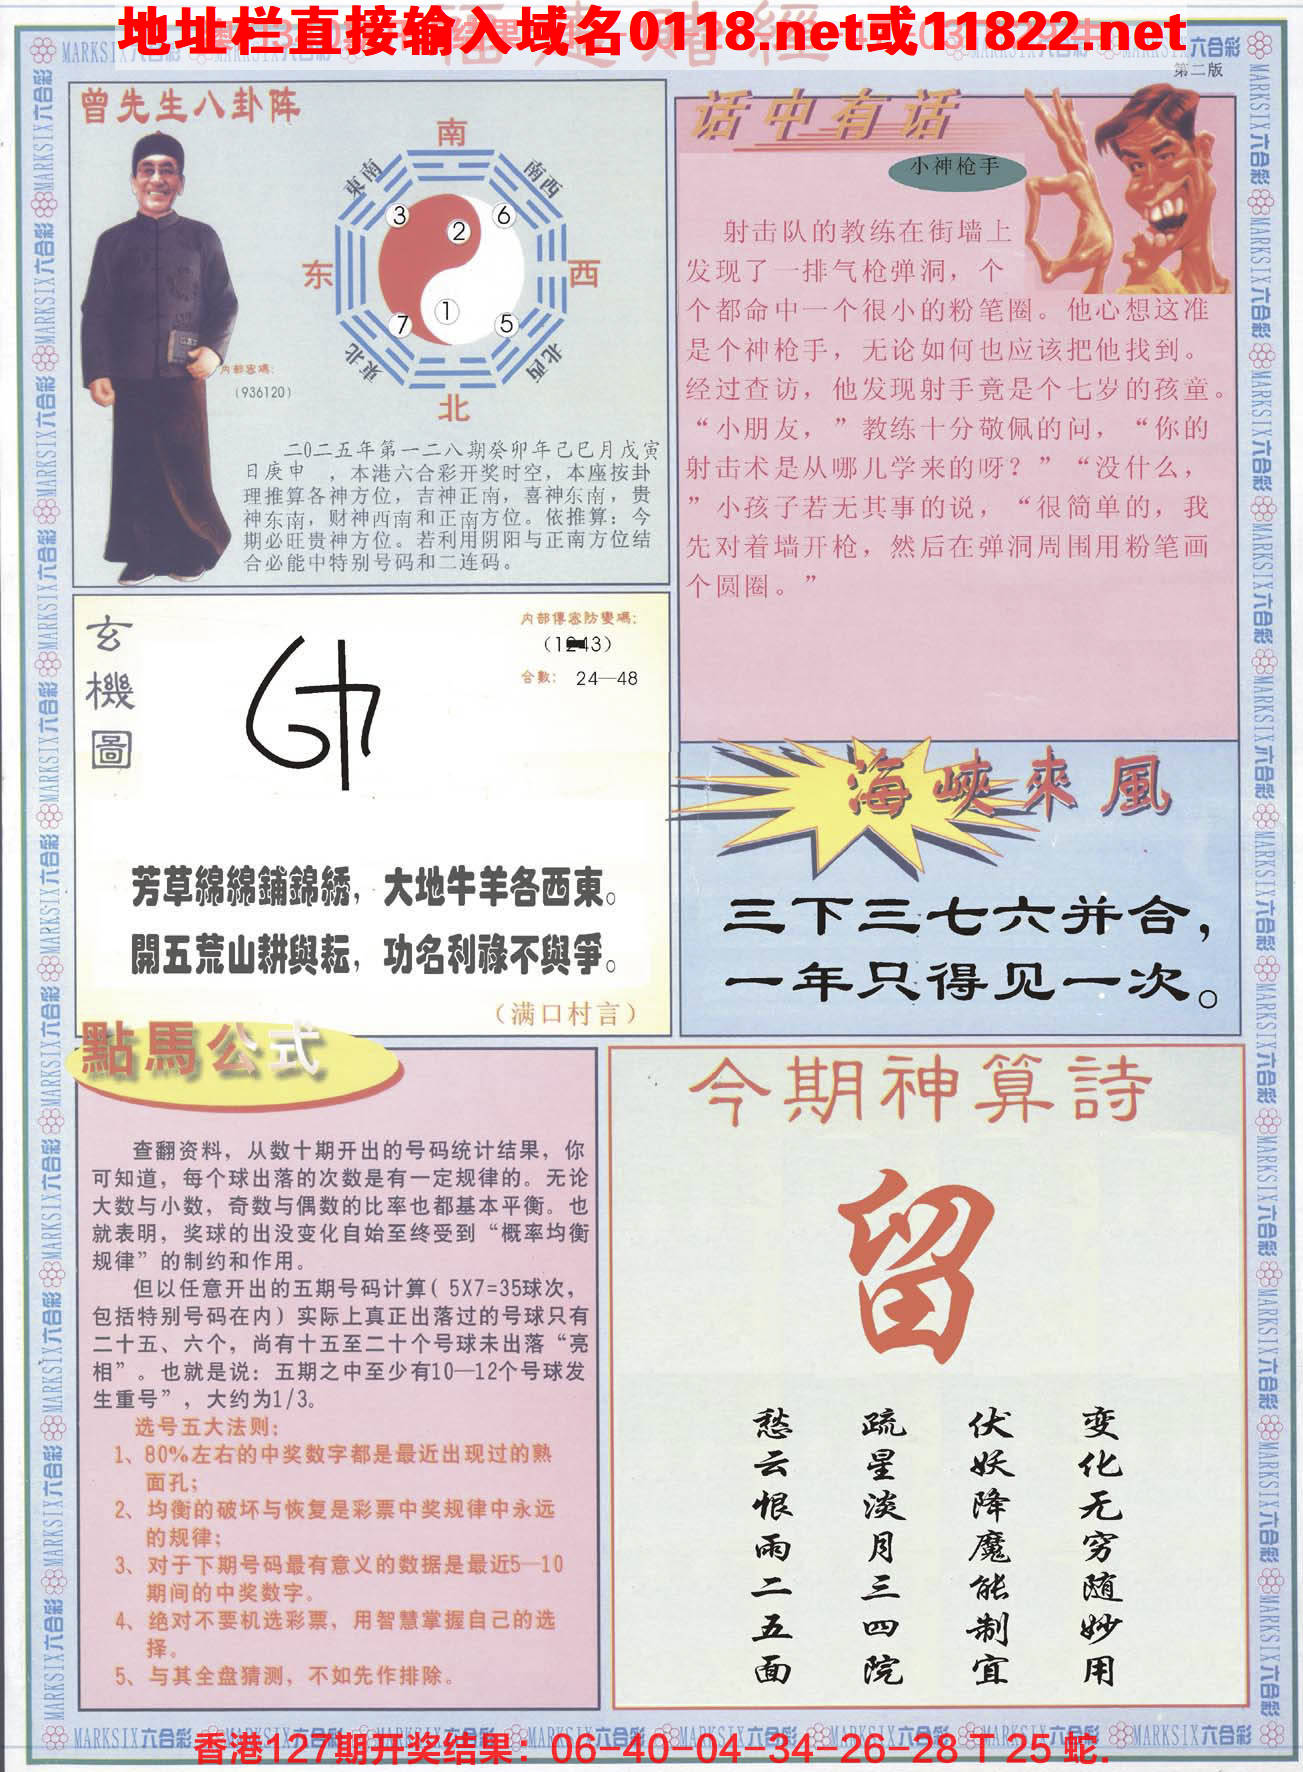 地址栏直接输入域名0118.net或11822.net
第二版
曾先生八卦阵
南
東南
南西
3
2
6
东
西
1
7
5
東北
北西
北
内部密碼:
(936120)
二0二五年第一二八期癸卯年己巳月戊寅
日庚申　,本港六合彩开奖时空,本座按卦
理推算各神方位,吉神正南,喜神东南,贵
神东南,财神西南和正南方位。依推算:今
期必旺贵神方位。若利用阴阳与正南方位结
合必能中特别号码和二连码。
话中有话
小神枪手
射击队的教练在街墙上
发现了一排气枪弹洞，个
个都命中一个很小的粉笔圈。他心想这准
是个神枪手，无论如何也应该把他找到。
经过查访，他发现射手竟是个七岁的孩童。
“小朋友，”教练十分敬佩的问，“你的
射击术是从哪儿学来的呀？”“没什么，
”小孩子若无其事的说，“很简单的，我
先对着墙开枪，然后在弹洞周围用粉笔画
个圆圈。”
玄機圖
内部傳密防變碼:
合數: 24—48
芳草綿綿鋪錦綉，大地牛羊各西東。
開五荒山耕與耘，功名利祿不與爭。
（满口村言）
海峽來風
三下三七六并合，
一年只得见一次。
點馬公式
查翻资料，从数十期开出的号码统计结果，你
可知道，每个球出落的次数是有一定规律的。无论
大数与小数，奇数与偶数的比率也都基本平衡。也
就表明，奖球的出没变化自始至终受到“概率均衡
规律”的制约和作用。
但以任意开出的五期号码计算( 5X7=35球次，
包括特别号码在内）实际上真正出落过的号球只有
二十五、六个，尚有十五至二十个号球未出落“亮
相”。也就是说：五期之中至少有10—12个号球发
生重号”，大约为1/3。
选号五大法则：
1、80%左右的中奖数字都是最近出现过的熟
面孔；
2、均衡的破坏与恢复是彩票中奖规律中永远
的规律；
3、对于下期号码最有意义的数据是最近5—10
期间的中奖数字。
4、绝对不要机选彩票，用智慧掌握自己的选
择。
5、与其全盘猜测，不如先作排除。
今期神算詩
留
变化无穷随妙用
伏妖降魔能制宜
疏星淡月三四院
愁云恨雨二五面
MARKSIX六合彩
香港127期开奖结果：06-40-04-34-26-28 T 25 蛇.